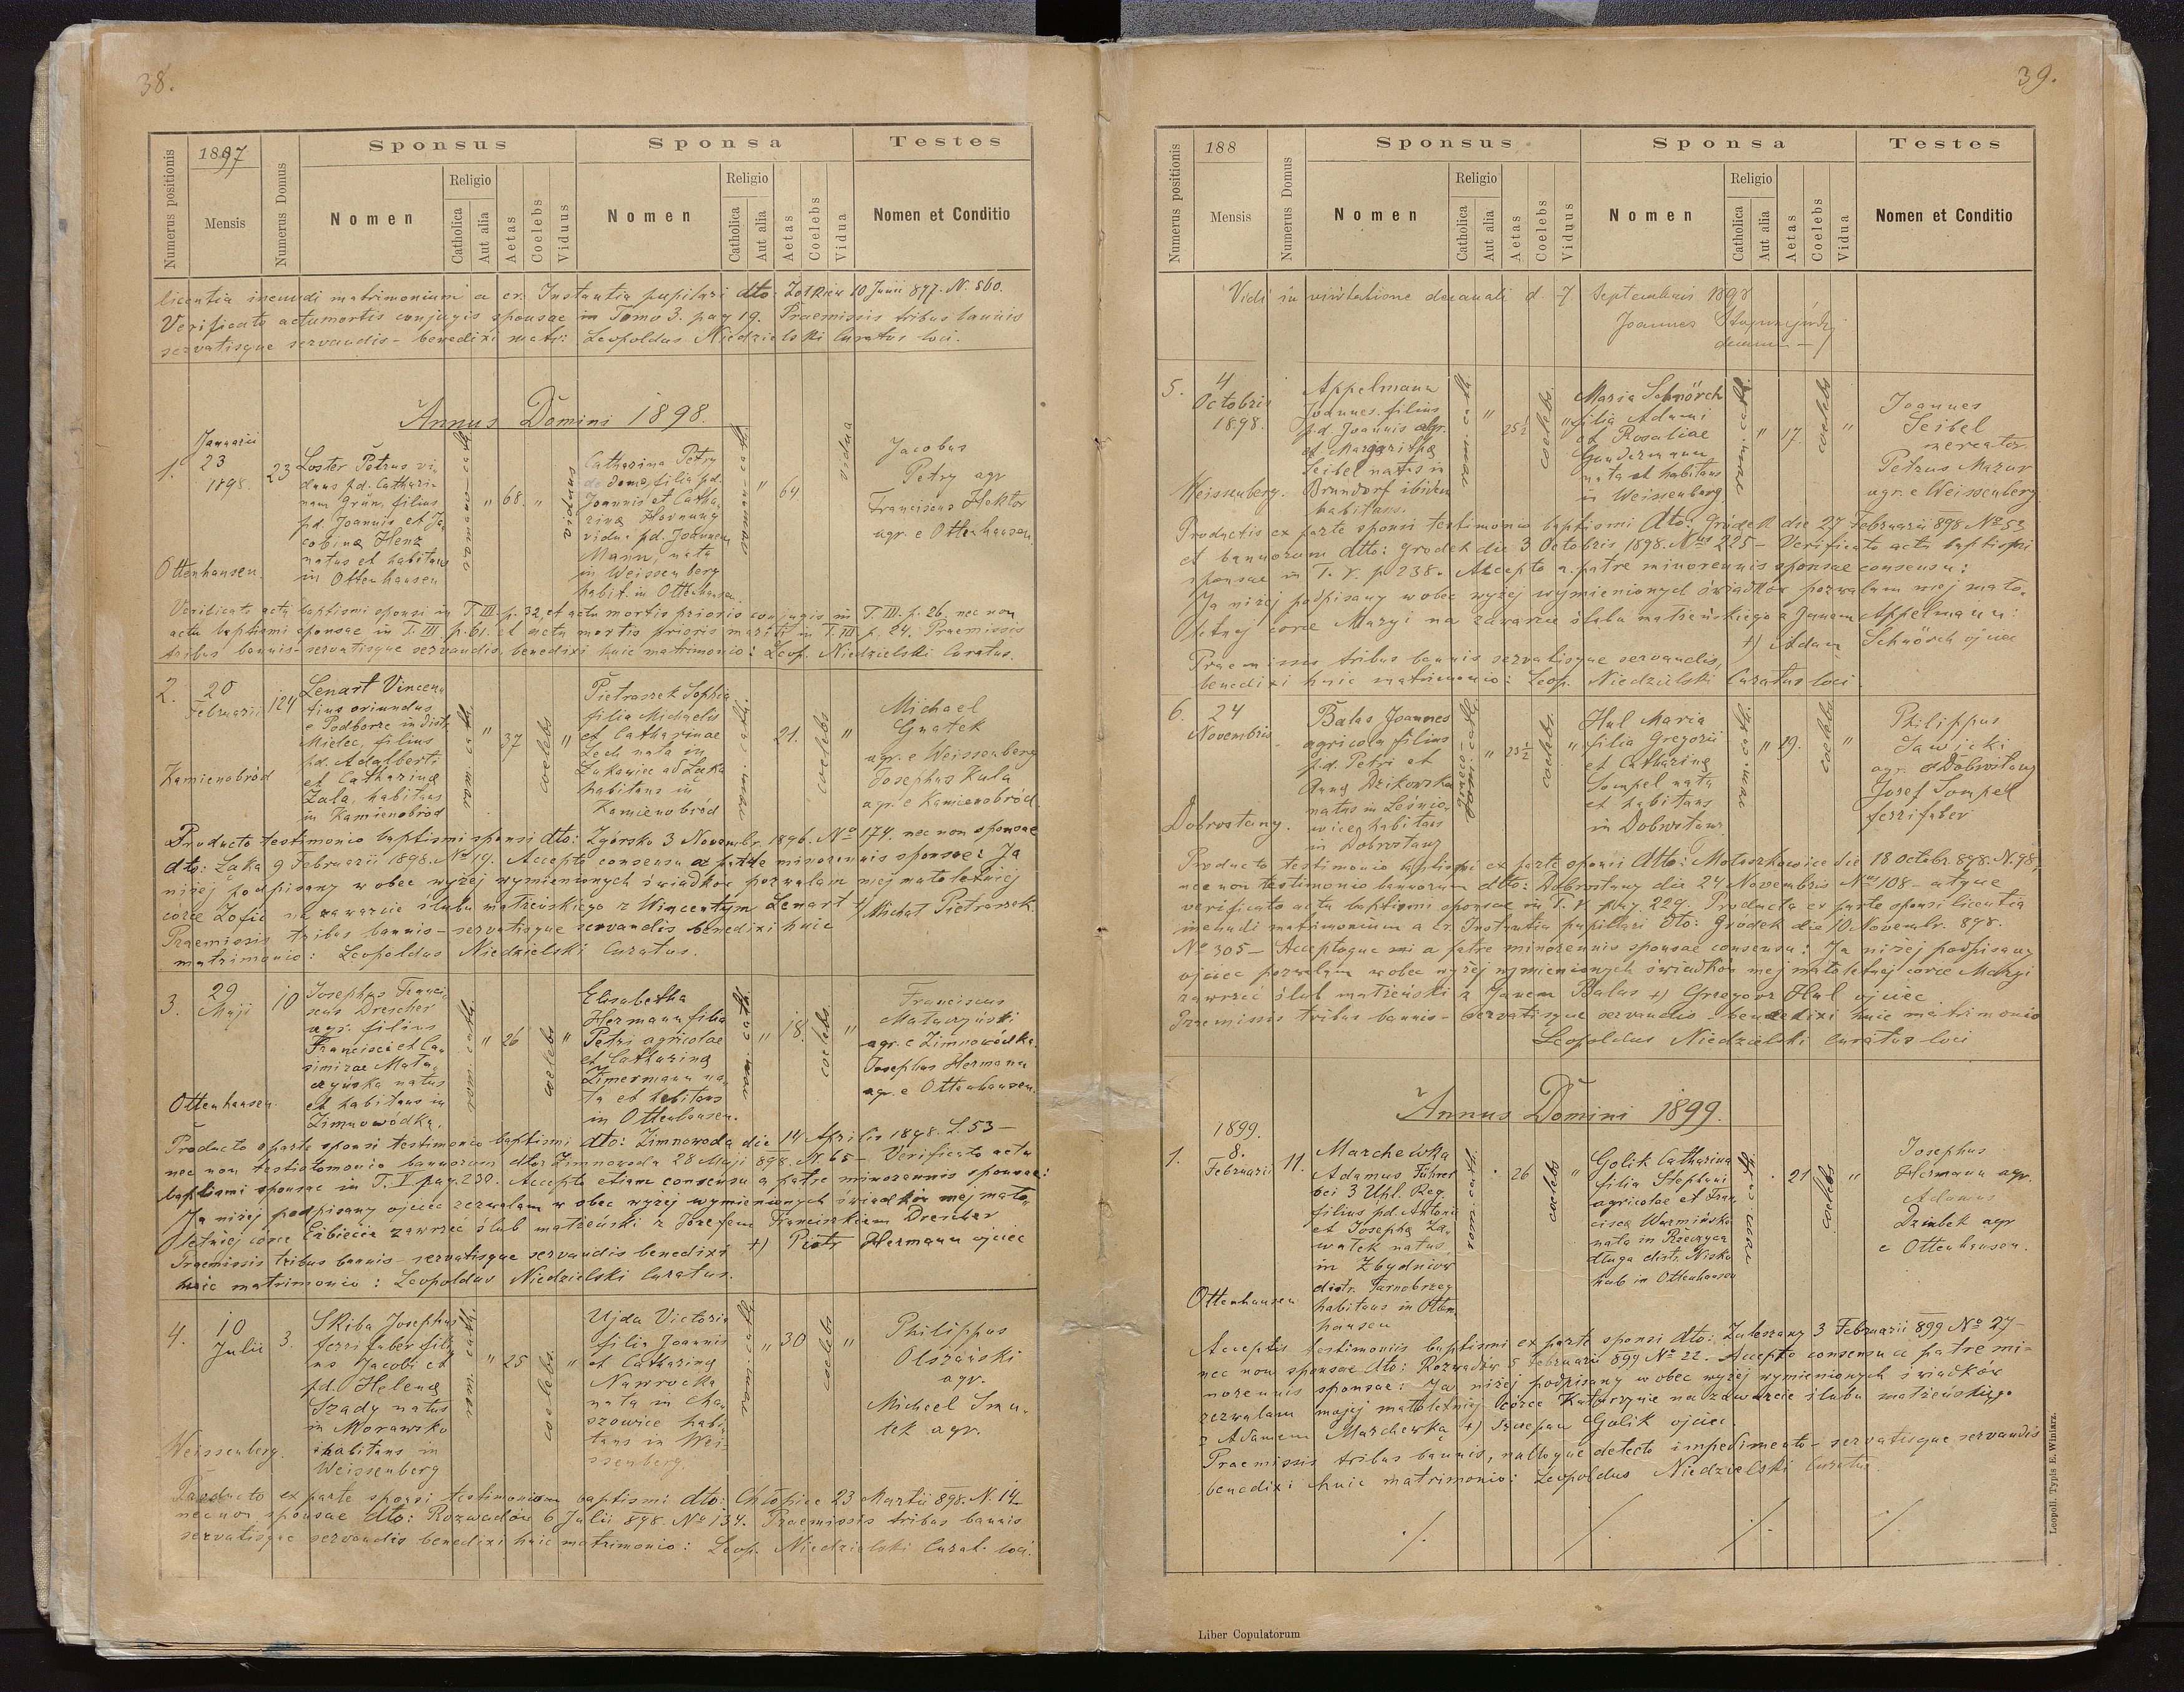 38.
Numerus positionis
1897
Mensis
Numerus Domus
Sponsus
Nomen
Religio
Catholica
Aut alia
Aetas
Coelebs
Viduus
Sponsa
Nomen
Religio
Catholica
Aut alia
Aetas
Coelebs
Vidua
Testes
Nomen et Conditio
licentia ineundi matrimonium a cr. Instantia pupilari dto: Żółkiew 10 Junii 897. N. 560.
Verificato actu mortis conjugis sponsae in Tomo 3. pag 19. Praemissis tribus bannis
servatisque servandis - benedixi matr: Leopoldus Niedzielski Curatus loci.
Annus Domini 1898.
1.
Januarii
23
1898.
Ottenhausen.
23
Loster Petrus vi-
duus pd. Cathari-
nam Grün, filius
pd. Joannis et Ja-
cobina Henz
natus et habitans
in Ottenhausen
"
68.
"
viduus
Catharina Petry
de domo, filia pd.
Joannis et Catha-
rina Hornung
vidua pd. Joannem
Mann, nata
in Weissenberg
habit. in Ottenhausen.
"
64
vidua
Jacobus
Petry agr
Franciscus Hektor
agr. e Ottenhausen
Verificato actu baptismi sponsi in T. III. p. 32, et actu mortis prioris conjugis in T. III. p. 26, nec non
actu baptismi sponsae in T. III p. 61. et actu mortis prioris mariti in T. III p. 24. Praemissis
tribus bannis - servatisque servandis, benedixi huic matrimonio: Leop. Niedzielski Curatus.
2.
20
Februarii
Kamienobród
124
Lenart Vincen-
tius oriundus
e Podborze in distr
Mielec, filius
pd. Adalberti
et Catharina
Zala, habitans
in Kamienobród
"
37
coelebs
"
Pietraszek Sophia
filia Michaelis
et Catharinae
Lech nata in
Łukawiec ad Łąka
habitans in
Kamienobród
21.
coelebs
"
Michael
Gnatek
agr. e Weissenberg
Josephus Kula
agr. e Kamienobród.
Producto testimonio baptismi sponsi dto: Zgórsko 3 Novembr. 1896. No 174. nec non sponsae
dto: Łąka 9 Februarii 1898. No 19. Accepto consensu a patre minorennis sponsae: Ja
niżej podpisany wobec wyżej wymienionych świadków pozwalam mej małoletniej
córce Zofii na zawarcie ślubu małżeńskiego z Wincentym Lenart +) Michał Pietraszek.
Praemissis tribus bannis - servatisque servandis benedixi huic
matrimonio: Leopoldus Niedzielski Curatus.
3.
29
Maji
Ottenhausen
10
Josephus Franci-
scus Drescher
agr. filius
Francisci et Ca-
simirae Matu-
szyńska natus
et habitans in
Zimnowódka.
"
26
coelebs
"
Elisabetha
Hermann filia
Petri agricolae
et Catharina
Zimermann na-
ta et habitans
in Ottenhausen.
"
18.
coelebs
"
Franciscus
Matuszyński
agr. e Zimnowódka
Josephus Hermann
agr. e Ottenhausen.
Producto ex parte sponsi testimonio baptismi dto: Zimnowoda die 14 Aprilis 1898. L. 53 -
nec non testimonio bannorum dto: Zimnowoda 28 Maji 898. N. 65 - Verificato actu
baptismi sponsae in T. V pag. 230. Accepto etiam consensu a patre minorennis sponsae:
Ja niżej podpisany ojciec zezwalam wobec wyżej wymienionych świadków mej mało-
letniej córce Elżbiecie zawrzeć ślub małżeński z Józefem Franciszkiem Drescher
+) Piotr Hermann ojciec
Praemissis tribus bannis - servatisque servandis benedixi
huic matrimonio: Leopoldus Niedzielski Curatus.
4.
10
Julii
Weissenberg.
3.
Skiba Josephus
ferrifaber fili-
us Jacobi et
pd. Helena
Szady natus
in Morawsko
habitans in
Weissenberg
"
25
coelebs
"
Ujda Victoria
filia Joannis
et Catharina
Nawrocka
nata in Cha-
rzowice habi-
tans in Wei-
ssenberg.
"
30
coelebs
"
Philippus
Olszański
agr.
Michael Gna-
tek agr.
Producto ex parte sponsi testimonium baptismi dto: Chłopice 23 Martii 898. N. 14
nec non sponsae dto: Rozwadów 6 Julii 898. No 134. Praemissis tribus bannis
servatisque servandis benedixi huic matrimonio: Leop. Niedzielski Curat. loci.
39.
Numerus positionis
188
Mensis
Numerus Domus
Sponsus
Nomen
Religio
Catholica
Aut alia
Aetas
Coelebs
Viduus
Sponsa
Nomen
Religio
Catholica
Aut alia
Aetas
Coelebs
Vidua
Testes
Nomen et Conditio
Vidi in visitatione decanali d. 7 Septembris 1898
Joannes
5.
4
Octobris
1898.
Weissenberg.
Appelmann
Joannes. filius
pd. Joannis agr.
et Margaritha
Seibel natus in
Brundorf ibidem
habitans.
"
25½
coelebs
"
Maria Schnörch
filia Adami
et Rosaliae
Gundermann
nata et habitans
in Weissenberg
"
17.
coelebs
"
Joannes
Seibel
mercator
Petrus Mazur
agr. e Weissenberg
Productis ex parte sponsi testimonio baptismi dto: Gródek die 27 Februarii 898 No 53
et bannorum dtto: Grodek die 3 Octobris 1898. Nus 225 - Verificato actu baptismi
sponsae in T. V. p 238. Accepto a. patre minorennis sponsae consensu:
Ja niżej podpisany wobec wyżej wymienionych świadków pozwalam mej mało-
letniej córce Maryi na zawarcie ślubu małżeńskiego z Janem Appelmann:
+) Adam Schnörch ojciec
Praemissis tribus bannis servatisque servandis,
benedixi huic matrimonio: Leop. Niedzielski Curatus loci.
6.
24
Novembris
Dobrostany.
Balas Joannes
agricola filius
pd. Petri et
Anna Dzikowska
natus in Leśnio-
wice habitans
in Dobrostany
"
23½
coelebs
"
Hul Maria
filia Gregorii
et Catharina
Sompel nata
et habitans
in Dobrostany
"
19.
coelebs
"
Philippus
Jawicki
agr. e Dobrostany
Josef Sompel
ferrifaber
Producto testimonio baptismi ex parte sponsi dto: Motoszkowice die 18 octobr. 898. N. 98,
nec non testimonio bannorum dto: Dobrostany die 24 Novembris Nus 108 - atque
verificato actu baptismi sponsae in T. V. pag. 229. Producta ex parte sponsi licentia
ineundi matrimonium a cr. Instantia pupillari dto: Gródek die 10 Novembr. 898.
No 305 - Acceptoque mi a patre minorennis sponsae consensu: Ja niżej podpisany
ojciec pozwalam wobec wyżej wymienionych świadków mej małoletniej córce Maryi
zawrzeć ślub małżeński z Janem Balas +) Grzegorz Hul ojciec.
Praemissis tribus bannis - servatisque servandis - benedixi huic matrimonio
Leopoldus Niedzielski Curatus loci
Annus Domini 1899.
1.
1899.
8.
Februarii
Ottenhausen
11.
Marchewka
Adamus Führer
bei 3 Uhl. Reg.
filius pd. Antoni
et Josepha Za-
watek natus
in Zbydniów
distr. Tarnobrzeg
habitans in Otten-
hausen
26
coelebs
"
Golik Catharina
filia Stephani
agricolae et Fran-
cisca Warmińska
nata in Rzeczyca
długa distr. Nisko
hab in Ottenhausen
21
coelebs
"
Josephus
Hermann agr.
Adamus
Dziubek agr
e Ottenhausen.
Acceptis testimoniis baptismi ex parte sponsi dto: Zaleszany 3 Februarii 899 No 27 -
nec non sponsae dto: Rozwadów 5 Februarii 899 No 22. Accepto consensu a patre mi-
norennis sponsae: Ja niżej podpisany wobec wyżej wymienionych świadków
zezwalam mojej małoletniej córce Katarzynie na zawarcie ślubu małżeńskiego
z Adamem Marchewką +) Szczepan Golik ojciec.
Praemissis tribus bannis, nulloque detecto impedimento - servatisque servandis
benedixi huic matrimonio: Leopoldus Niedzielski Curatus
Leopoli. Typis E. Winiarz.
Liber Copulatorum